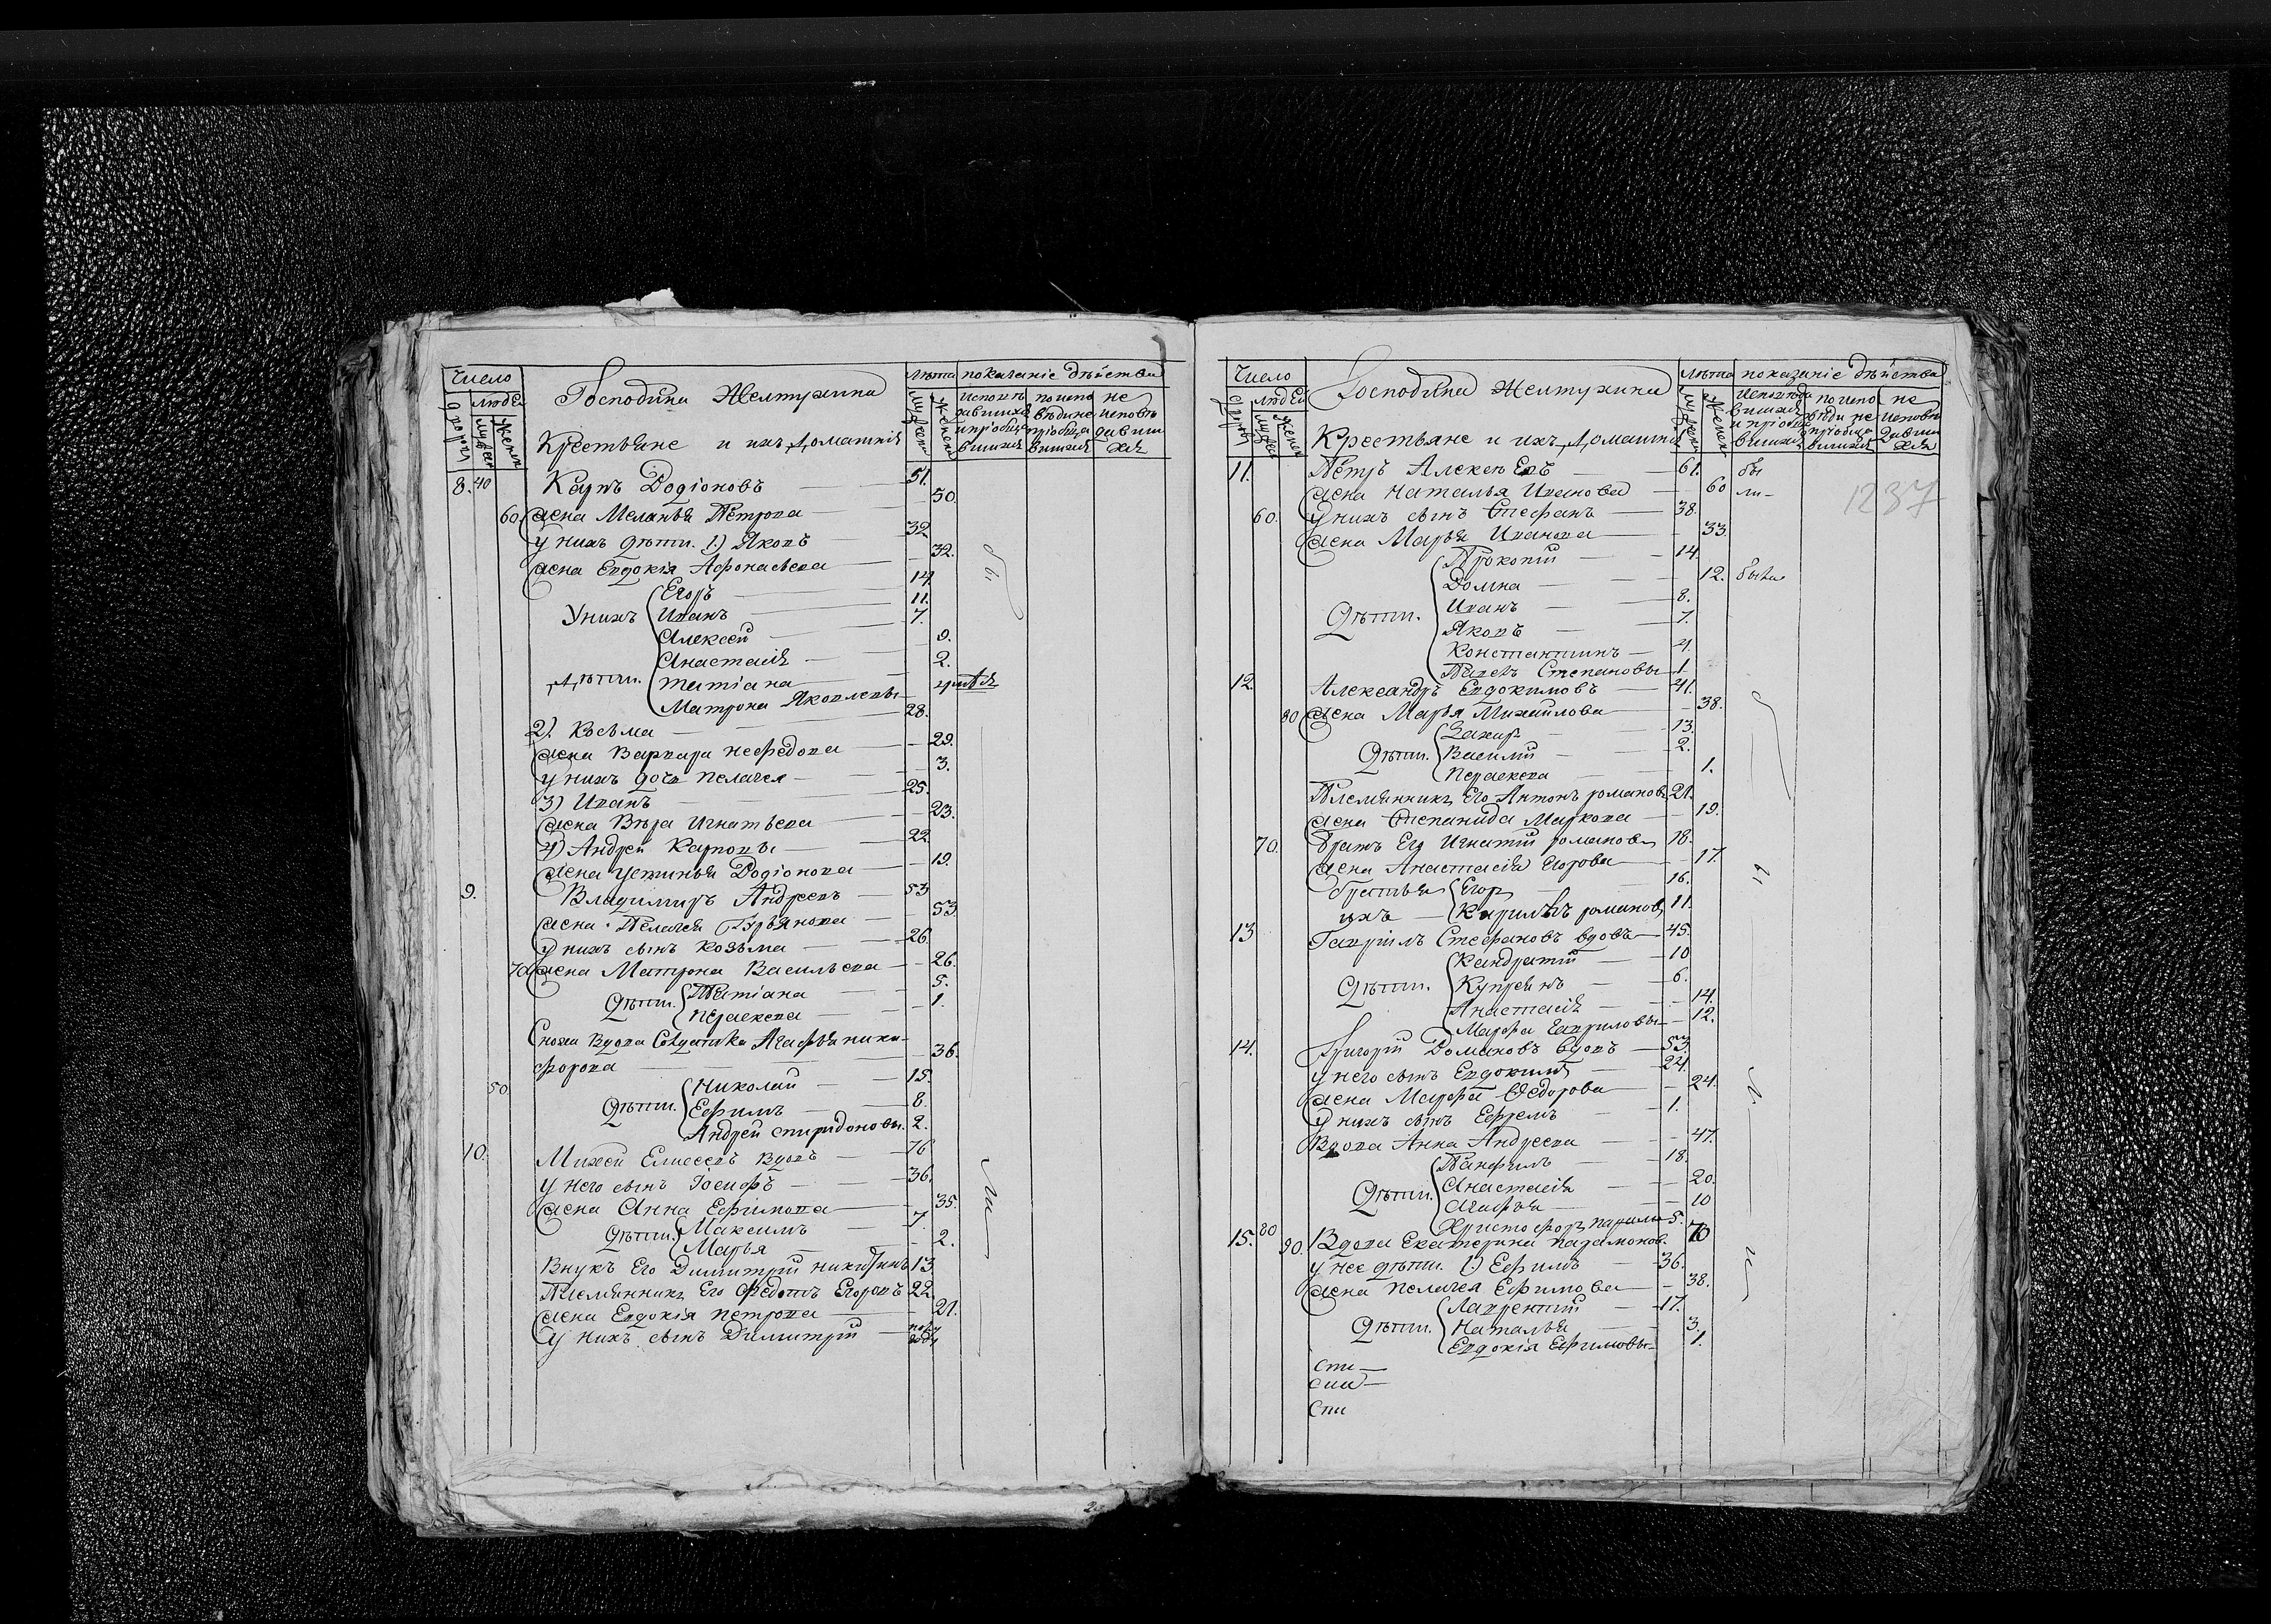 Число
людей
дворов
мужеск
женск
Господина Желтухина
Крестьяне и ихъ домашнія
Лѣта
мужеск
женск
показаніе дѣйства
исповѣдавшихся и пріобщавшихся
по исповѣди не пріобщавшихся
не исповѣдавшихся
8. 40 Карпъ Родіоновъ 51.
60. Жена Меланья Петрова 50.
у нихъ дѣти. 1.) Яковъ 32
Жена Евдокія Афонасьева 32.
Егоръ 14
У нихъ Иванъ 11.
Алексей 7.
Анастасія 9.
дѣти. Татіана 2.
Матрона Яковлевы
2). Козьма 28.
Жена Варвара Нефедова 29.
у нихъ дочь Пелагея 3.
3) Иванъ 25.
Жена Вѣра Игнатьева 23.
4) Андрей Карповы 22
Жена Устинья Родіонова 19.
9. Владимиръ Андреевъ 53
Жена Пелагея Гурьянова 53
У нихъ сынъ Козьма 26
70 Жена Матрона Васильева 26.
Дѣти. Татіана 5.
Перасковa 1.
Сноха вдова Солдатка Агафья Ники-
форова 36.
50 Николай 15.
Дѣти. Ефимъ 8.
Андрей Спиридоновы. 2.
10. Михей Елисеевъ вдовъ 76
у него сынъ Іосифъ 36.
Жена Анна Ефимова 35.
Дѣти. Максимъ 7.
Марья 2.
Внукъ Его Димитрій Никитинъ 13
Племянникъ Его Федотъ Егоровъ 22
Жена Евдокія Петрова 21.
У нихъ сынъ Димитрій полу году
бы
ли
Число
людей
дворов
мужеск
женск
Господина Желтухина
Крестьяне и ихъ домашнія
Лѣта
мужеск
женск
показаніе дѣйства
исповѣдавшихся и пріобщавшихся
по исповѣди не пріобщавшихся
не исповѣдавшихся
1237
11. Петръ Алексеевъ 61. бы
Жена Наталья Иванова 60 ли
60. У нихъ сынъ Стефанъ 38.
Жена Марья Иванова 33.
Прокопій 14.
Домна 12. была
Дѣти. Иванъ 8.
Яковъ 7.
Константинъ 4.
Павелъ Степановы 1.
12. Александръ Евдокимовъ 41.
80 Жена Марья Михайлова 38.
Захаръ 13.
Дѣти. Василій 2.
Перасковa 1.
Племянникъ Его Антонъ Романовъ 21.
Жена Степанида Маркова 19.
70. Братъ Его Игнатій Романовъ 18.
Жена Анастасія Егорова 17.
братья Егоръ 16.
ихъ Кирилъ Романовы 11.
13 Гавріилъ Стефановъ вдовъ 45.
Кандратій 10
Дѣти. Купреянъ 6.
Анастасія 14.
Марфа Гавриловы 12.
14. Григорій Романовъ вдовъ 53.
у него сынъ Евдокимъ 24.
Жена Марфа Федорова 24.
У нихъ сынъ Ефремъ 1.
Вдова Анна Андреева 47.
Панфилъ 18.
Дѣти. Анастасія 20.
Агафья 10
Христофоръ 5.
15. 80 90. Вдова Екатерина Парамонова 70
у нее дѣти. 1.) Ефимъ 36.
Жена Пелагея Ефимова 38.
Лаврентій 17.
Дѣти. Наталья 3.
Евдокія Ефимовы 1.